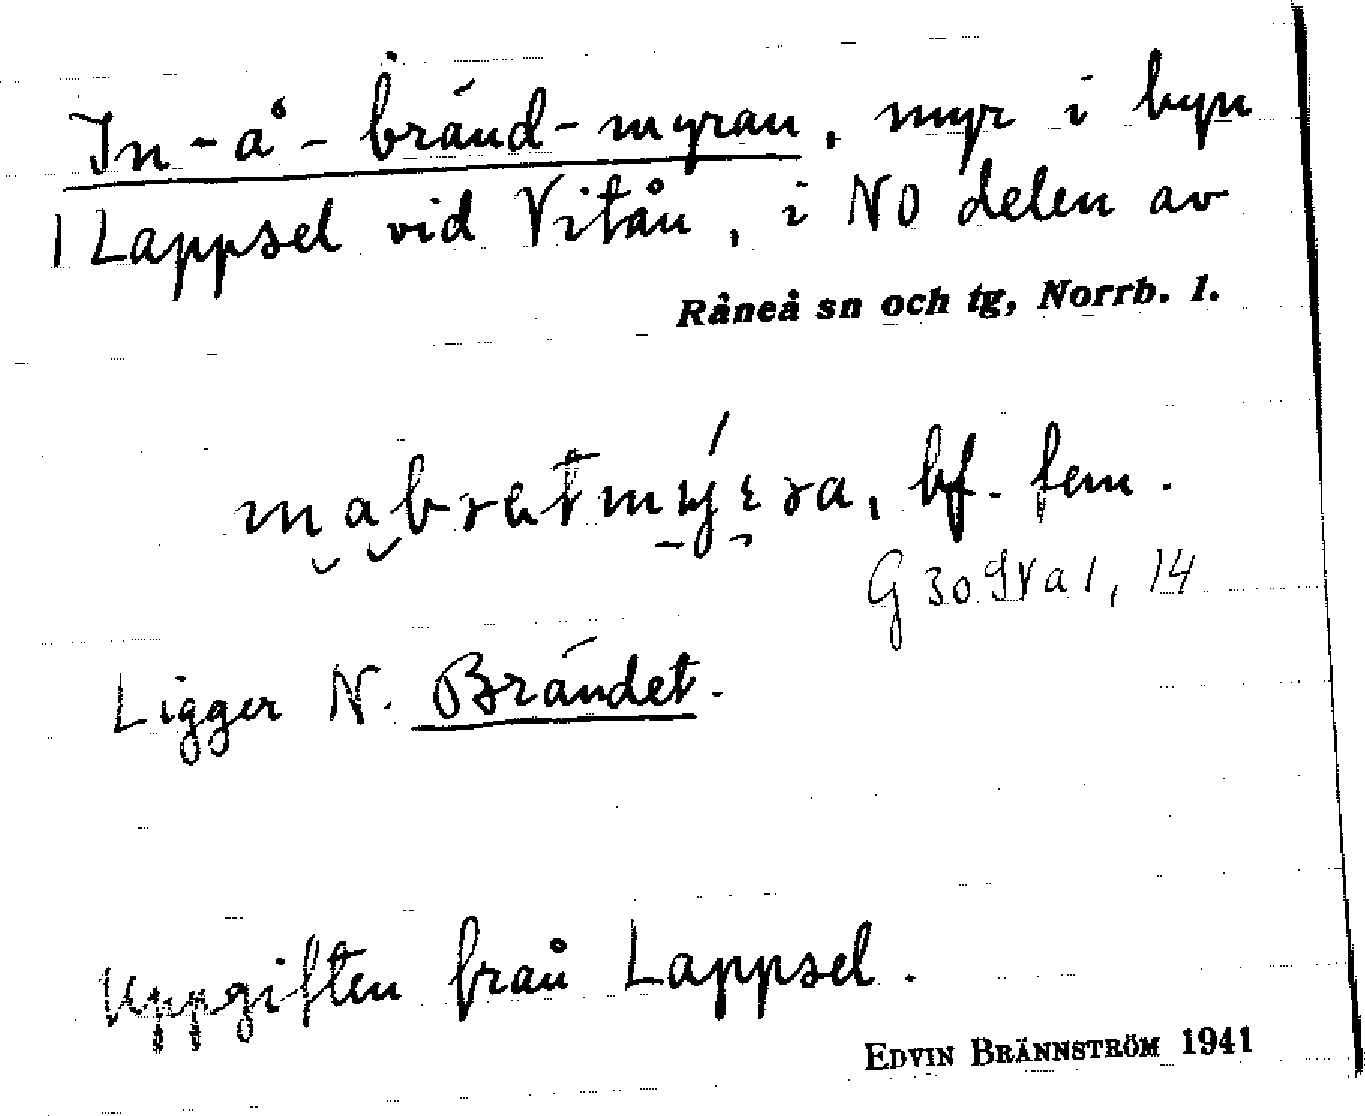 In-å-bränd-myran, myr i byn
Lappsel vid Vitån, i NO delen av
Råneå sn och tg, Norrb. l.
bf. fem.
Ligger N. Brändet.
Uppgiften från Lappsel.
EDVIN BRÄNNSTRÖM 1941